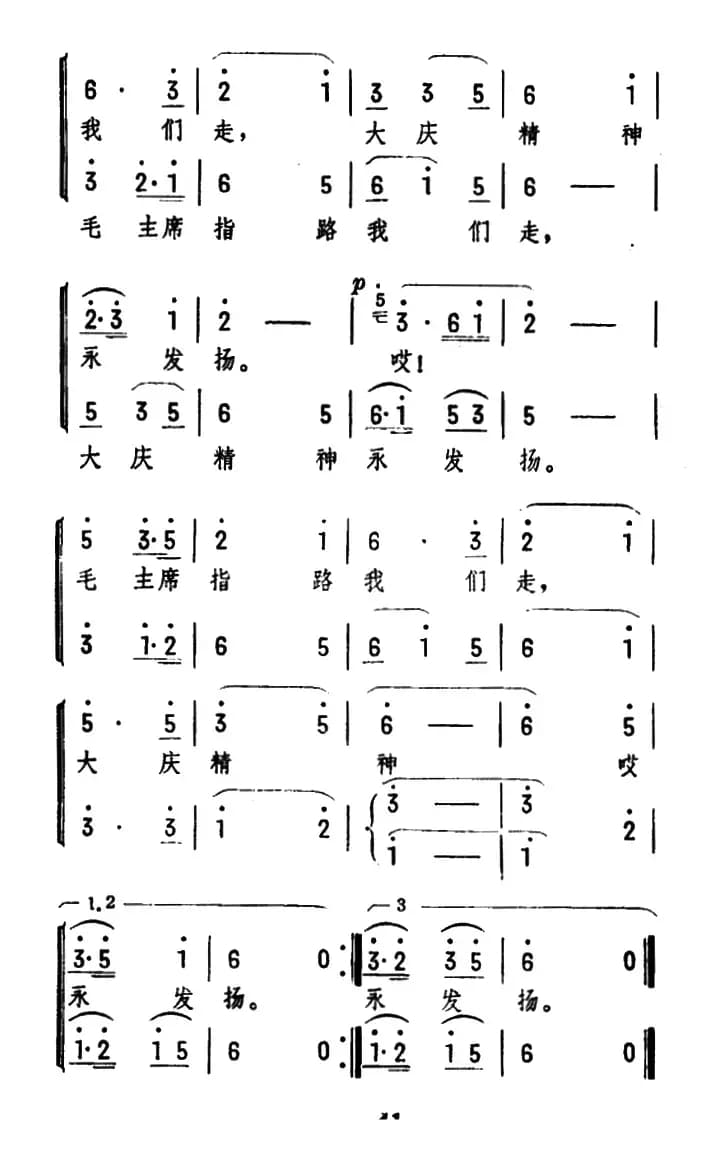 6 · 3 | 2 1 | 3 3 5 | 6 1 |
我 们 走， 大 庆 精 神
3 2·1 | 6 5 | 6 1 5 | 6 — |
毛 主席 指 路 我 们 走，
2·3 1 | 2 — | p 5 3 · 6 1 | 2 — |
永 发 扬。 哎！
5 3 5 | 6 5 | 6·1 5 3 | 5 — |
大 庆 精 神 永 发 扬。
5 3·5 | 2 1 | 6 · 3 | 2 1 |
毛 主席 指 路 我 们 走，
3 1·2 | 6 5 | 6 1 5 | 6 1 |
5 · 5 | 3 5 | 6 — | 6 5 |
大 庆 精 神 哎
3 · 3 | 1 2 | 3 — | 3 2 |
1 — | 1
1.2 3
3·5 1 | 6 0 :| 3·2 3 5 | 6 0 ‖
永 发 扬。 永 发 扬。
1·2 1 5 | 6 0 :| 1·2 1 5 | 6 0 ‖